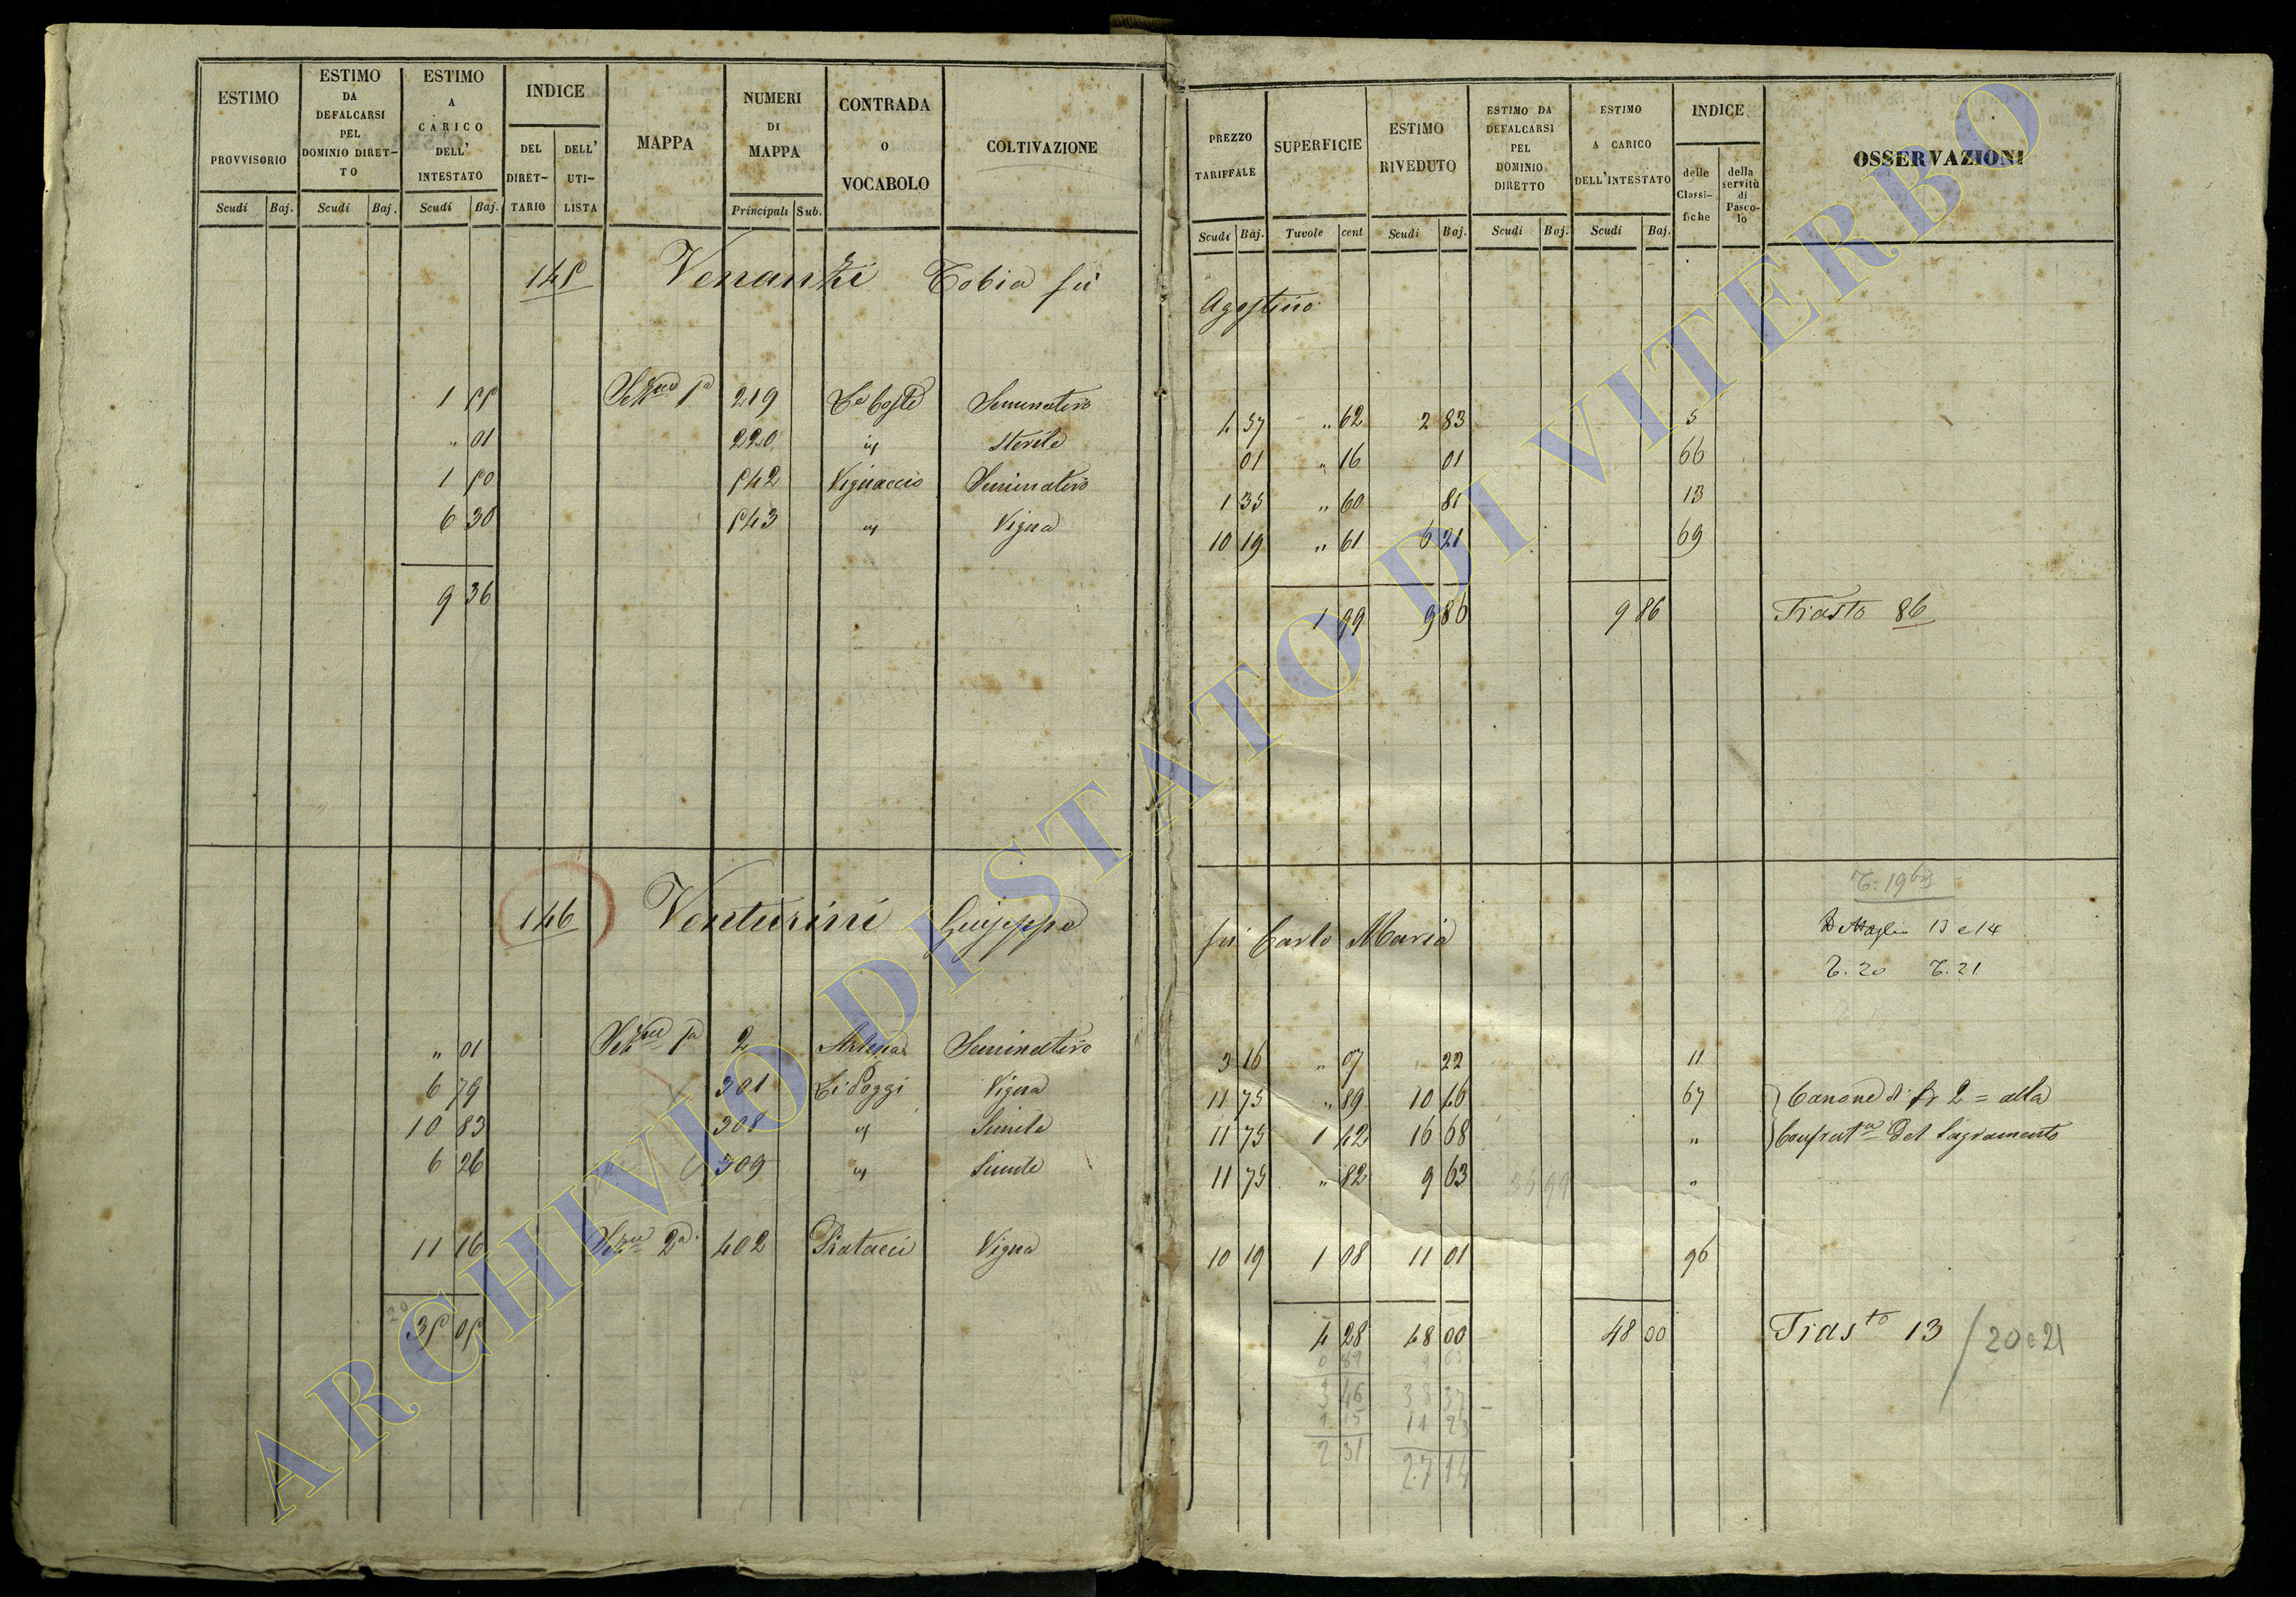 ESTIMO PROVVISORIO
Scudi Baj.
ESTIMO DA DEFALCARSI PEL DOMINIO DIRET-TO
Scudi Baj.
ESTIMO A CARICO DELL' INTESTATO
Scudi Baj.
INDICE
DEL DIRET-TARIO
DELL' UTI-LISTA
MAPPA
NUMERI DI MAPPA
Principali Sub.
CONTRADA O VOCABOLO
COLTIVAZIONE
PREZZO TARIFFALE
Scudi Baj.
SUPERFICIE
Tavole cent
ESTIMO RIVEDUTO
Scudi Baj.
ESTIMO DA DEFALCARSI PEL DOMINIO DIRETTO
Scudi Baj.
ESTIMO A CARICO DELL'INTESTATO
Scudi Baj.
INDICE
delle Classi-fiche
della servitù di Pasco-lo
OSSERVAZIONI
145 Venanzi Tobia fù Agostino
1 55 Sezne 1a 219 Le Coste Seminativo 4 57 " 62 2 83 5
" 01 220 id Sterile 01 " 16 01 66
1 50 542 Vignaccio Seminativo 1 35 " 60 81 13
6 30 543 id Vigna 10 19 " 61 6 21 69
9 36 1 99 9 86 9 86 Trasto 86
146 Venturini Giuseppe fù Carlo Maria
T: 19 bis
Dettaglio 13 e 14
T. 20 T. 21
" 01 Sezne 1a 2 Arlena Seminativo 3 16 " 07 22 11
6 79 301 Li Poggi Vigna 11 75 " 89 10 46 67 Canone di 2 = alla
10 83 308 id Simile 11 75 1 42 16 68 " Confrata del Sagramento
6 26 309 id Simile 11 75 " 82 9 63 35 99 "
11 16 Sezne 2a 402 Pratacci Vigna 10 19 1 08 11 01 96
35 05 4 28 48 00 48 00 Trasto 13 / 20 e 21
0 89 9 63
3 46 38 37
1 15 11 23
2 31 27 14
ARCHIVIO DI STATO DI VITERBO